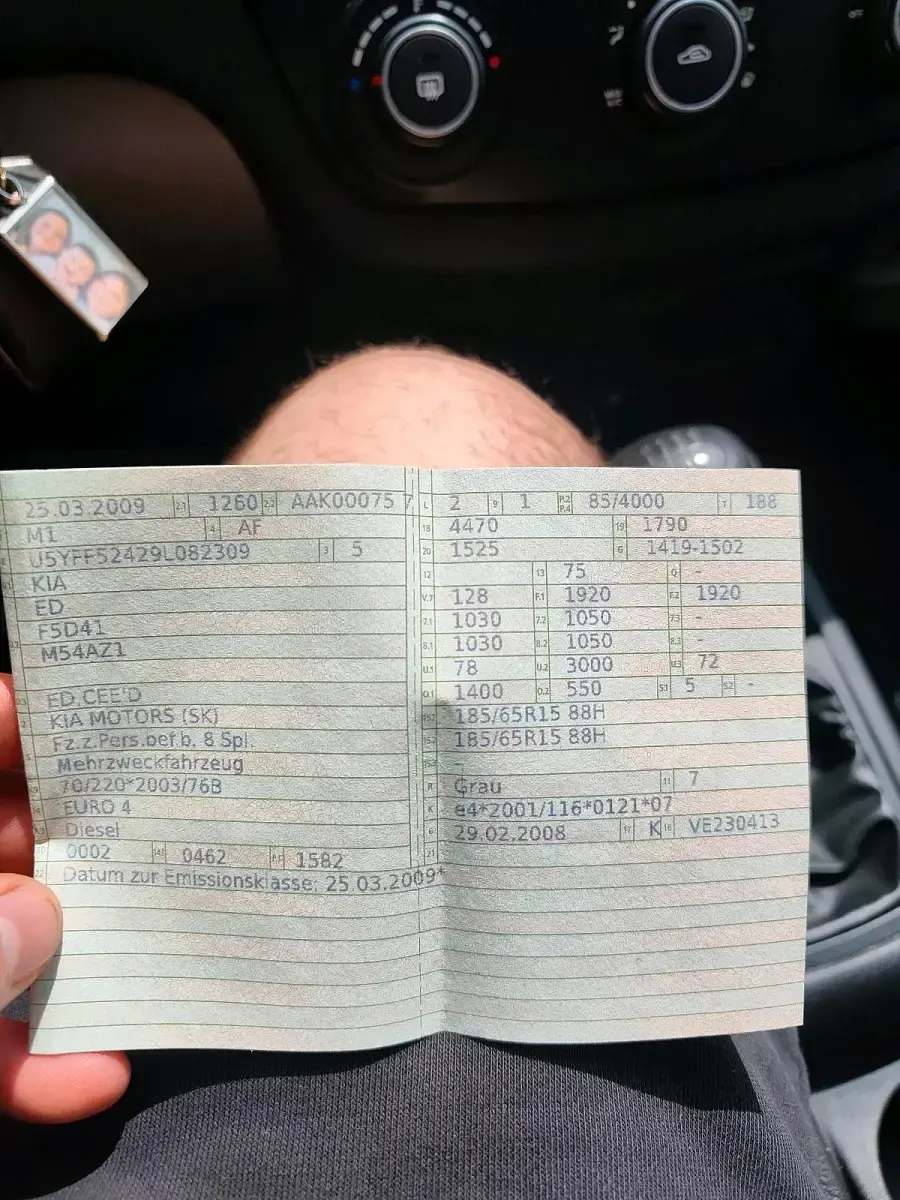 25.03.2009 2.1 1260 2.2 AAK00075 7
M1 4 AF
U5YFF52429L082309 3 5
KIA
ED
F5D41
M54AZ1
ED,CEE'D
KIA MOTORS (SK)
Fz.z.Pers.bef.b. 8 Spl.
Mehrzweckfahrzeug
70/220*2003/76B
EURO 4
Diesel
0002 0462 P.1 1582
Datum zur Emissionsklasse: 25.03.2009*
L 2 9 1 P.2 P.4 85/4000 T 188
18 4470 19 1790
20 1525 G 1419-1502
12 13 75 Q -
V.7 128 F.1 1920 F.2 1920
7.1 1030 7.2 1050 7.3 -
8.1 1030 8.2 1050 8.3 -
U.1 78 U.2 3000 U.3 72
O.1 1400 O.2 550 S.1 5 S.2 -
185/65R15 88H
185/65R15 88H
-
R Grau 11 7
K e4*2001/116*0121*07
6 29.02.2008 17 K 16 VE230413
21